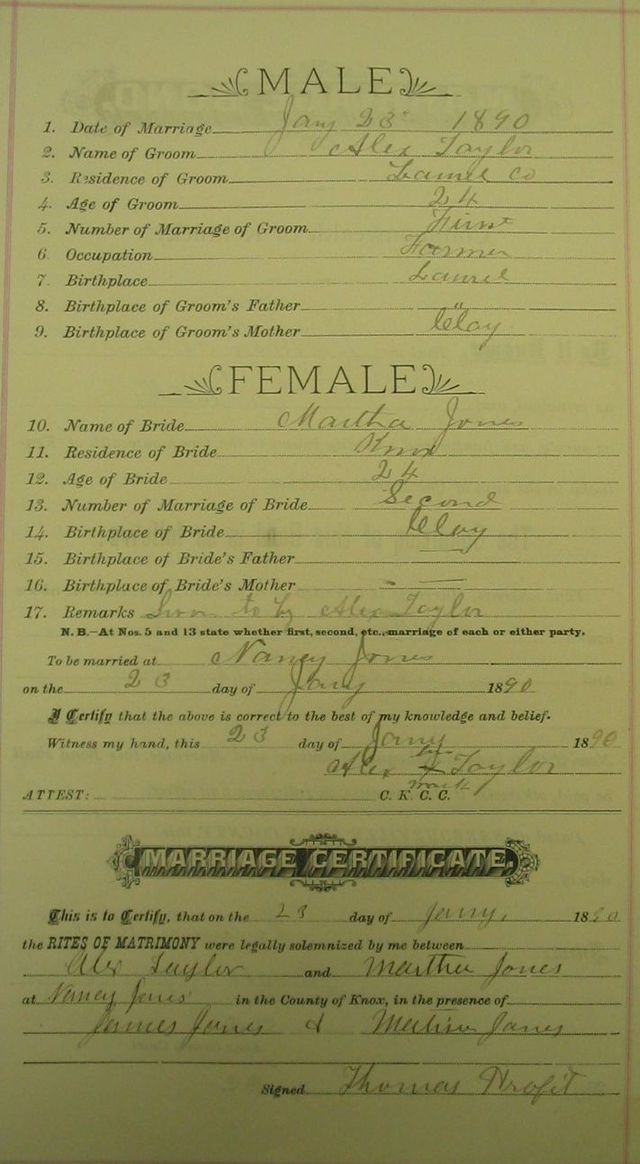 MALE
1. Date of Marriage Jany 23 1890
2. Name of Groom Alex Taylor
3. Residence of Groom Laurel Co
4. Age of Groom 24
5. Number of Marriage of Groom First
6. Occupation Farmer
7. Birthplace Laurel
8. Birthplace of Groom's Father "
9. Birthplace of Groom's Mother Clay
FEMALE
10. Name of Bride Martha Jones
11. Residence of Bride Knox
12. Age of Bride 24
13. Number of Marriage of Bride Second
14. Birthplace of Bride Clay
15. Birthplace of Bride's Father —
16. Birthplace of Bride's Mother - —
17. Remarks Sworn to by Alex Taylor
N. B.—At Nos. 5 and 13 state whether first, second, etc., marriage of each or either party.
To be married at Nancy Jones
on the 23 day of Jany 1890
I Certify that the above is correct to the best of my knowledge and belief.
Witness my hand, this 23 day of Jany 1890
Alex his X mark Taylor
ATTEST: C. K. C. C.
MARRIAGE CERTIFICATE.
This is to Certify, that on the 23 day of Jany, 1890
the RITES OF MATRIMONY were legally solemnized by me between
Alex Taylor and Martha Jones
at Nancy Jones in the County of Knox, in the presence of
James Jones & Jones
Signed Thomas Profit